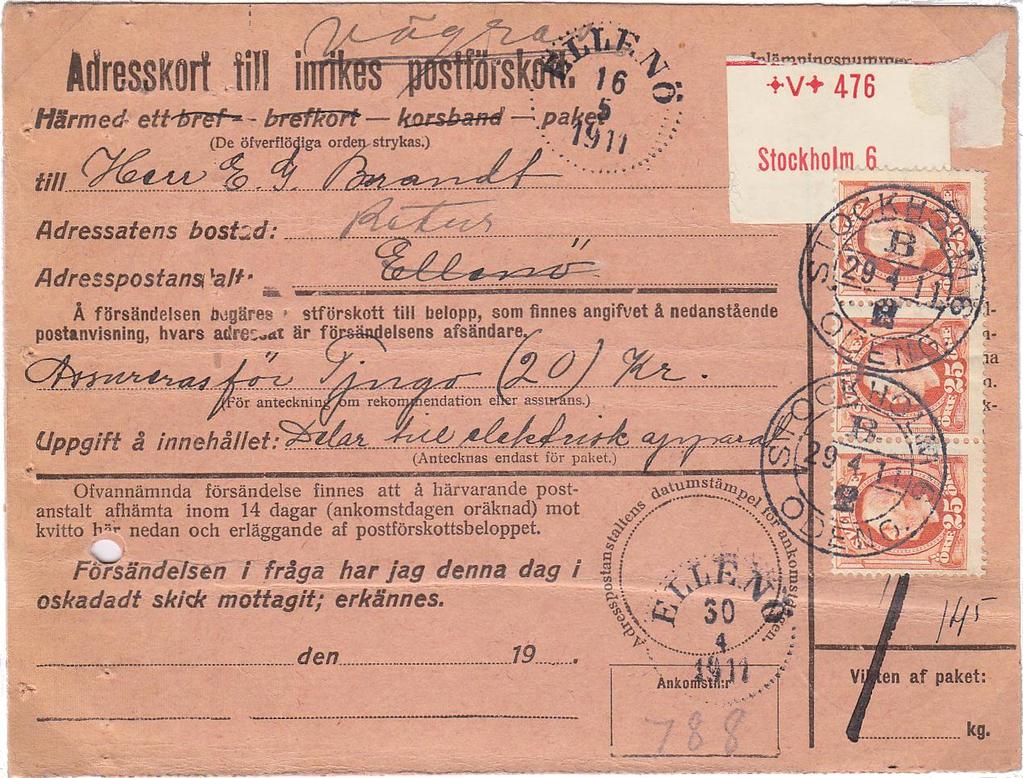 vägrar
Adresskort till inrikes postförskott.
ELLENÖ
16
5
1911
Inlämningsnummer
V 476
Stockholm 6
Härmed ett bref — brefkort — korsband — paket
(De öfverflödiga orden strykas.)
till Herr E. G. Brandt
Retur
Adressatens bostad:
Adresspostanstalt: Ellenö
Å försändelsen begäres postförskott till belopp, som finnes angifvet å nedanstående
postanvisning, hvars adressat är försändelsens afsändare.
Assureras för Tjugo (20) Kr.
(För anteckning om rekommendation eller assurans.)
Uppgift å innehållet: Delar till elektrisk apparat
(Antecknas endast för paket.)
STOCKHOLM 6
B
29 4 11
ODENG.
25 ÖRE 25
STOCKHOLM 6
B
29 4 11
ODENG.
Ofvannämnda försändelse finnes att å härvarande post-
anstalt afhämta inom 14 dagar (ankomstdagen oräknad) mot
kvitto här nedan och erläggande af postförskottsbeloppet.
Försändelsen i fråga har jag denna dag i
oskadadt skick mottagit; erkännes.
Adresspostanstaltens datumstämpel för ankomstdagen
ELLENÖ
30
4
1911
den 19 .
Ankomstn:r
788
1
145
Vikten af paket:
kg.